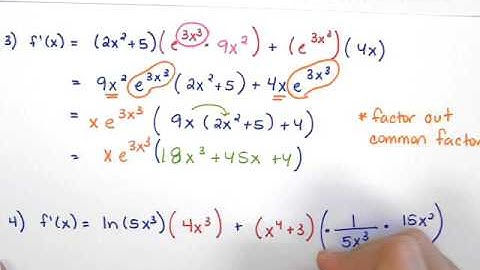 3) f'(x) = (2x²+5)(e^{3x³} · 9x²) + (e^{3x³})(4x)
= 9x² e^{3x³} (2x²+5) + 4x e^{3x³}
= x e^{3x³} ( 9x (2x²+5) + 4) * factor out
common factor
= x e^{3x³} (18x³ + 45x + 4)
4) f'(x) = ln(5x³)(4x³) + (x⁴+3)(· 1/5x³ · 15x²)